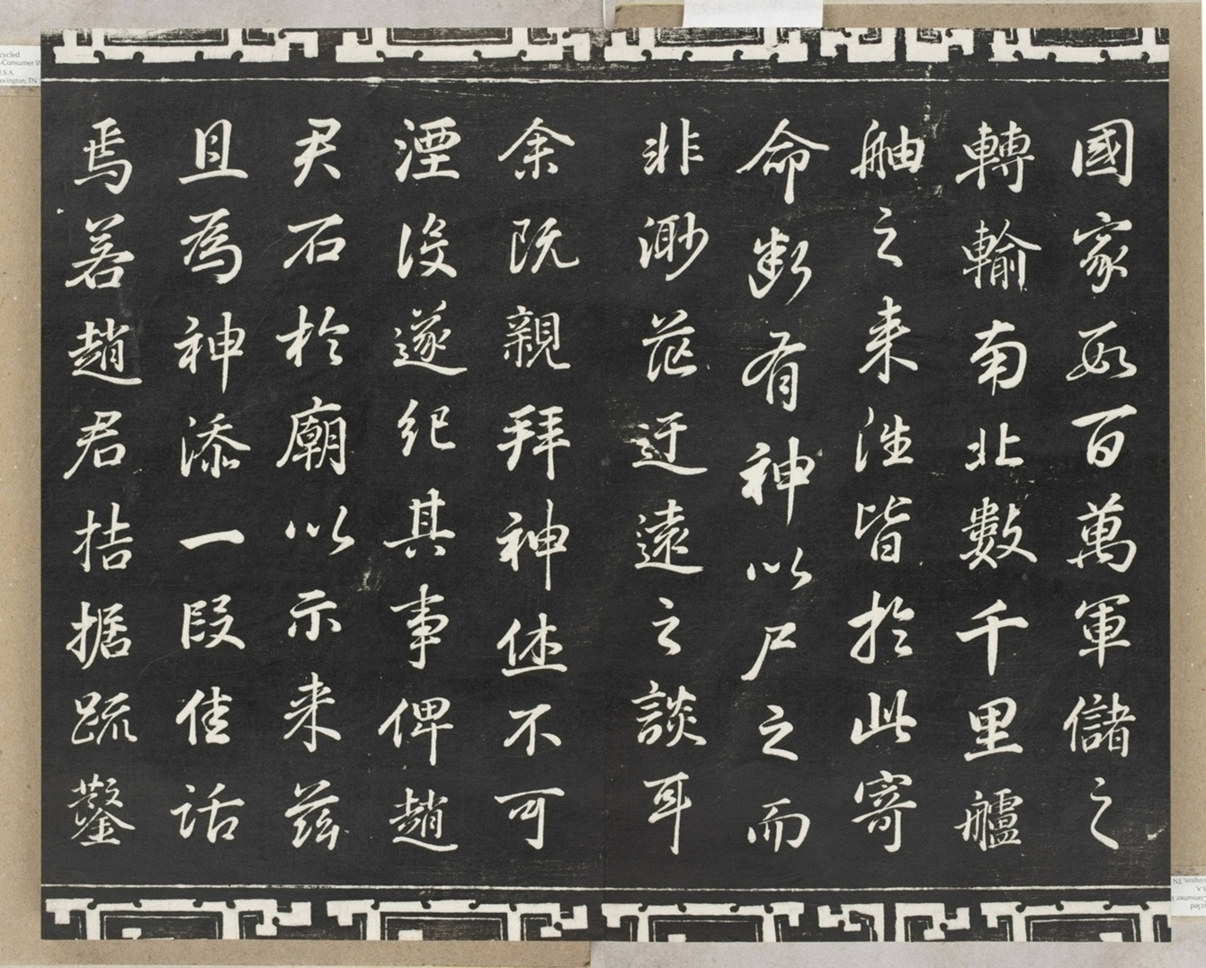 國家數百萬軍儲之
轉輸南北數千里艫
舳之来往皆於此寄
命斷有神以尸之而
非渺茫迂遠之談耳
余既親拜神休不可
湮沒遂紀其事俾趙
君石於廟以示来茲
且為神添一段佳話
焉若趙君拮据疏鑿